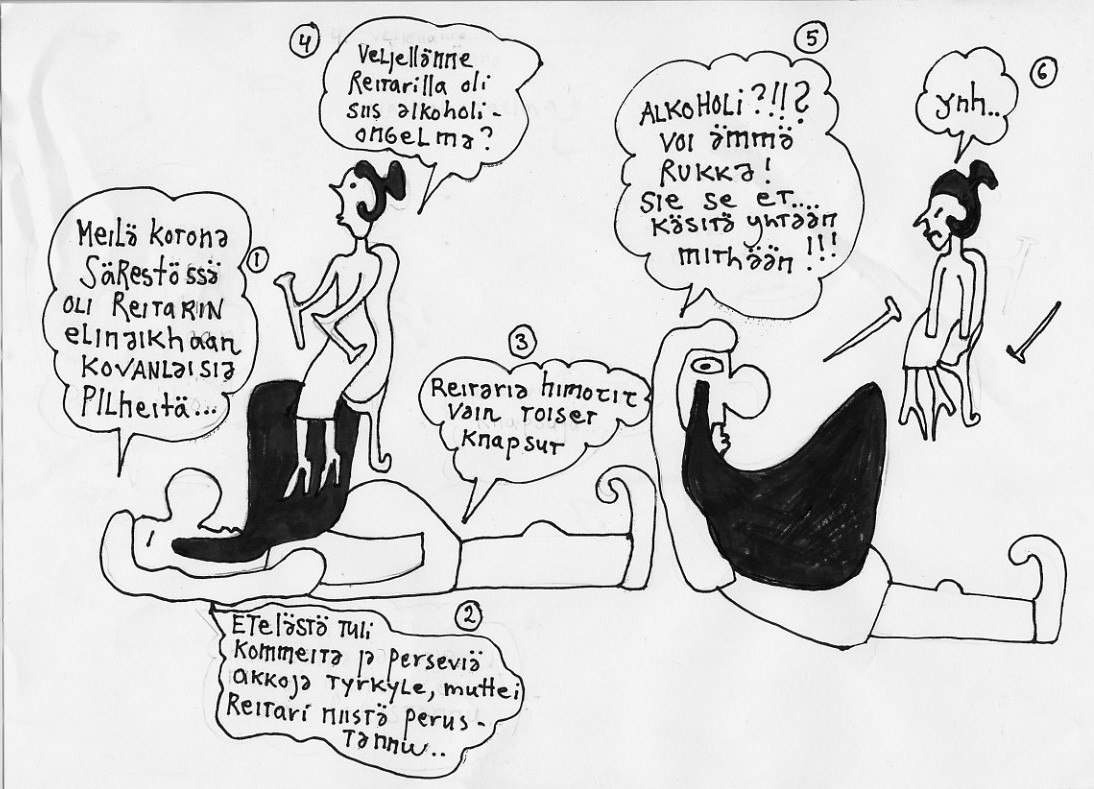 1
MEILÄ KOTONA
SÄRESTÖSSÄ
OLI REITARIN
ELINAIKHAAN
KOVANLAISIA
PILHEITÄ...
2
ETELÄSTÄ TULI
KOMMEITA JA PERSEVIÄ
AKKOJA TYRKYLE, MUTTEI
REITARI NIISTÄ PERUS-
TANNU..
3
REITARIA HIMOTIT
VAIN TOISET
KNAPSUT
4
VELJELLÄNNE
REITARILLA OLI
SIIS ALKOHOLI-
ONGELMA?
5
ALKOHOLI?!!?
VOI ÄMMÄ
RUKKA!
SIE SE ET....
KÄSITÄ YHTÄÄN
MITHÄÄN!!!
6
YNH..